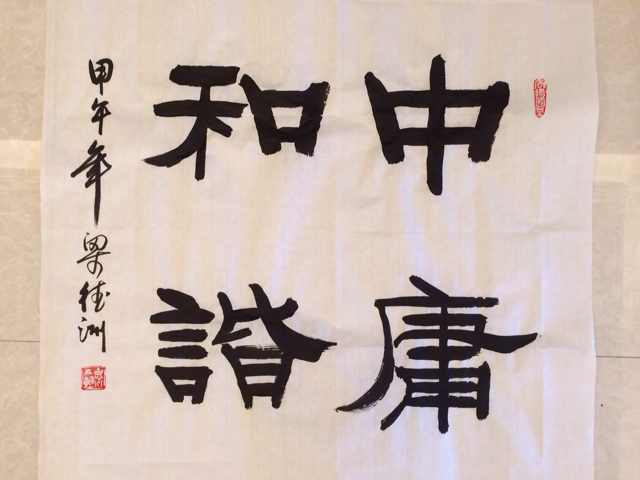 中庸
和諧
甲午年梁德洲